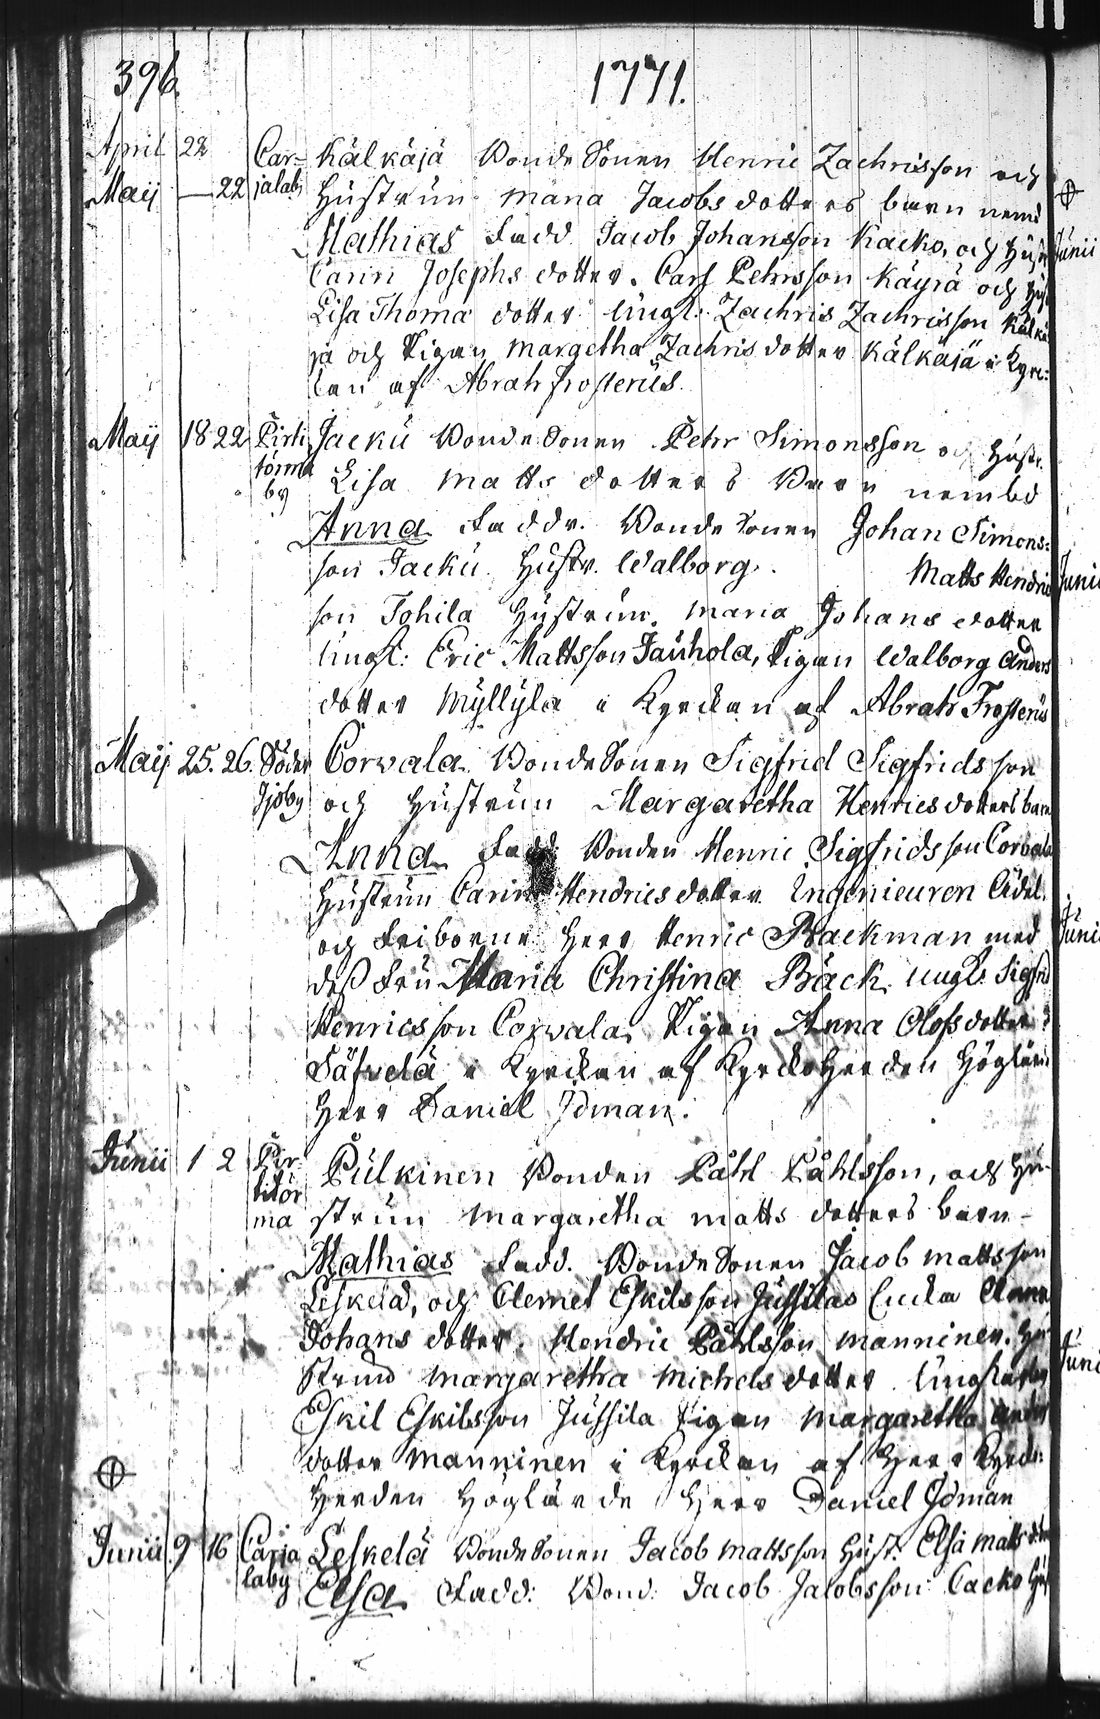 396.
1771.
April 22 Car= Kälkäjä Bonde Sonen Henric Zachrisson och
Maij — 22 jalab; Hustrun Maria Jacobs dotters barn nemd
Mathias Fadd. Jacob Johansson Kacko, och Hustr
Carin Josephs dotter. Carl Pehrsson Käyrä och Hust
Lisa Thoma dotter Ungl. Zachris Zachrisson Kälkä
jä och Pigan Margetha Zachris dotter Kälkäjä i Kyrc=
kan af Abrah Frosterus.
Maij 18 22 Pirti Jacku Bonde Sonen Pehr Simonsson och Hustr.
törmä Lisa Matts dotters Barn nembd
by
Anna Faddr. Bonde Sonen Johan Simons=
son Jacku Hustr. Walborg. Matts Hendric
son Tohila Hustrun Maria Johans dotter
Ungl: Eric Mattsson Jauhola, Pigan Walborg Anders
dotter Myllylä i Kyrckan af Abrah Frosterus
Maij 25. 26. Söder Corvala Bonde Sonen Sigfrid Sigfridsson
Ijoby och Hustrun Margaretha Henricsdotters barn
Anna Fadd Bonden Henric Sigfridsson Corvala
Hustrun Carin Hendricsdotter Ingenieuren Ädel.
och Friborne Herr Henric Backman med
dess Fru Maria Christina Bäck Ungl. Sigfri
Henricsson Corvala, Pigan Anna Olofsdotter
Säfvelä i Kyrckan af Kyrckoherden Höglärd
Herr Daniel Idman.
Junii 1 2 Pir= Pulkinen Bonden Påhl Påhlsson, och Hu=
titör strun Margaretha Matts dotters barn –
ma
Mathias Fadd. Bonde Sonen Jacob Mattsson
Leskelä, och Clemet Eskilsson Jussilas Encka Anna
Johans dotter. Hendric Påhlsson Manninen. Hu
strun Margaretha Michelsdotter Ungkarlen
Eskil Eskilsson Jussila Pigan Margaretha Anders
dotter Manninen i Kyrckan af Herr Kyrcko:
Herden Höglärde Herr Daniel Idman
Junii 9 16 Carja Leskelä Bonde Sonen Jacob Mattsson Hust. Elsa Matts
laby Elsa Fadd: Bond: Jacob Jacobsson Cacko Hust
Junii
Junii
Junii
Junii